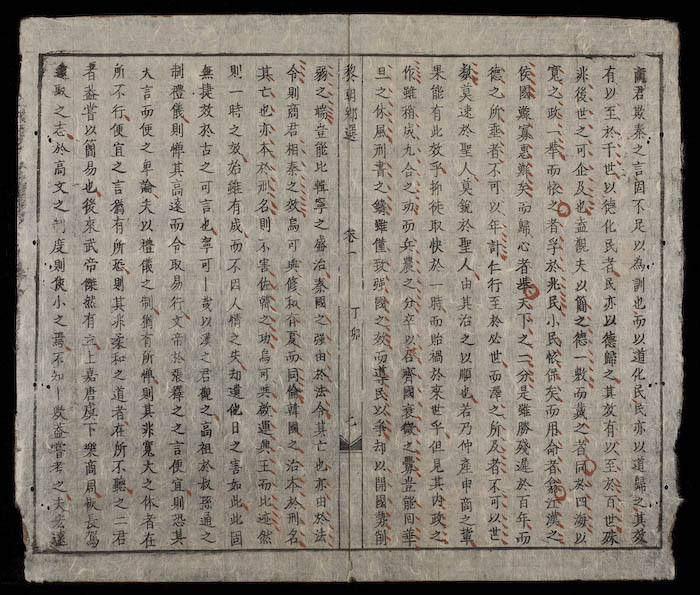 商君欺秦之言固不足以為訓也而以道化民民亦以道歸之其效
有以至於千世以德化民者民亦以德歸之其效有以至於百世殊
非後世之可企及也盍觀夫以簡之德一敷而戴之者同於四海以
寬之政一舉而懷之者孚於兆民小民懷保矣而用命者翕江漢之
侯國雖寡悪難矣而歸心者墍天下之二分是雖勝殘遲於百年而
德之所垂者不可以年計仁行至於必世而澤之所及者不可以世
數莫速於聖人莫銳於聖人由其治之以順也若乃仲產申商之輩
果能有此效乎抑徒取快於一時而貽禍於來世乎但見其內政之
作雖稍成九合之功而兵農之分卒以召齊國衰微之釁豈能同華
旦之休風刑書之鑄雖僅致強國之效而導民以爭却以開國勢削
黎朝鄉選 卷一 丁卯 二
弱之端豈能比輯寧之盛治秦國之强由於法令其亡也亦由於法
令則商君相秦之效烏可與修和有夏而同倫韓國之治本於刑名
其亡也亦本於刑名則不害佐韓之功烏可與啟運興王而比迹然
則一時之效始雖有成而不因人情之失却遺他日之害如此此固
無捷效於古之可言也寧可一或以漢之君觀之高祖於叔孫通之
制禮儀則憚其高遠而令取易行文帝於張釋之之言便宜則恐其
大言而使之卑論夫以禮儀之制猶有所憚則其非寬大之体者在
所不行便宜之言猶有所恐則其非柔和之道者在所不聽之二君
者盍嘗以簡易也後來武帝傑然有立上嘉唐虞下樂商周板長駕
遠取之志於高文之制度則狹小之焉不知一數盍嘗考之夫宏遠